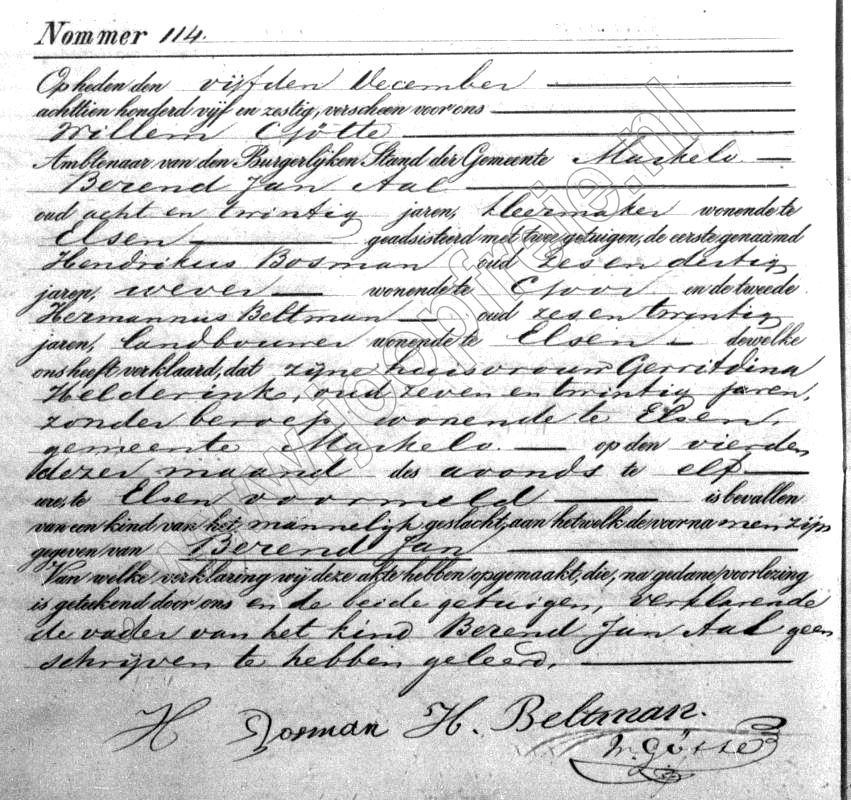 Nommer 114.
Op heden den vijfden December
achttien honderd vijf en zestig, verscheen voor ons
Willem Götte
Ambtenaar van den Burgerlijken Stand der Gemeente Markelo
Berend Jan Aal
oud acht en twintig jaren, kleermaker wonende te
Elsen geadsisteerd met twee getuigen, de eerste genaamd
Hendrikus Bosman oud zes en dertig
jaren, wever wonende te Goor en de tweede
Hermannus Beltman oud zes en twintig
jaren, landbouwer wonende te Elsen dewelke
ons heeft verklaard, dat zijne huisvrouw Gerritdina
Helderink, oud zeven en twintig jaren,
zonder beroep wonende te Elsen,
gemeente Markelo op den vierden
dezer maand des avonds te elf
ure, te Elsen voormeld is bevallen
van een kind van het mannelijk geslacht, aan hetwelk de voornamen zijn
gegeven van Berend Jan
Van welke verklaring wij deze akte hebben opgemaakt, die, na gedane voorlezing
is geteekend door ons en de beide getuigen, verklarende
de vader van het kind Berend Jan Aal geen
schrijven te hebben geleerd.
H Bosman H. Beltman.
W. Götte
www.joopfritte.nl